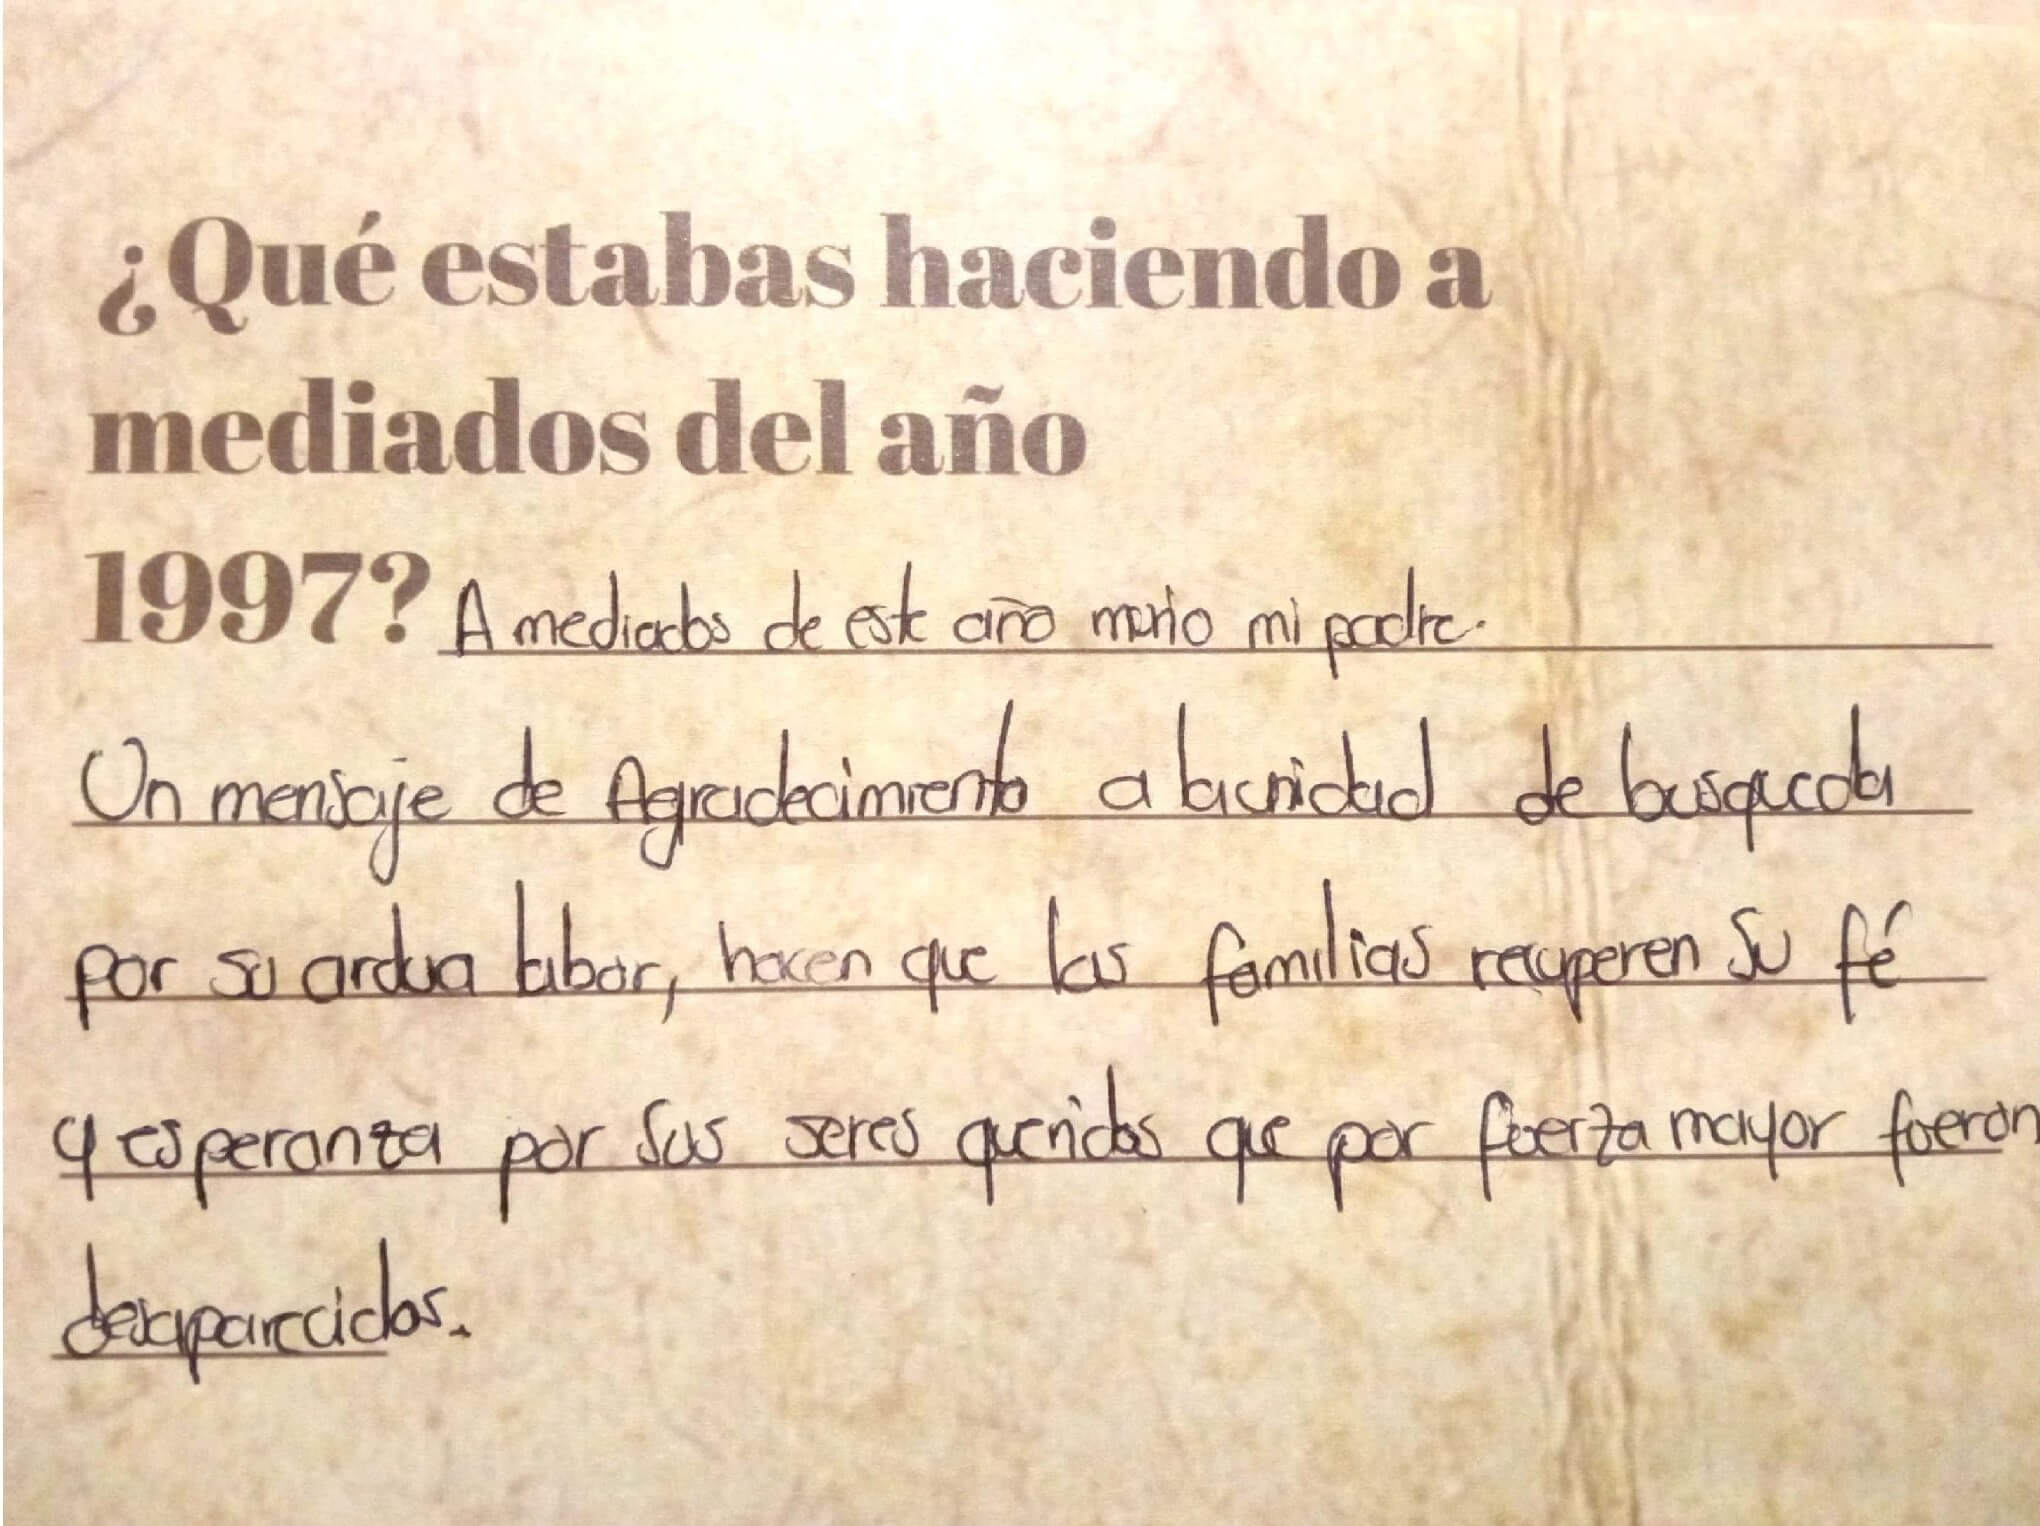 ¿Qué estabas haciendo a
mediados del año
1997? A mediados de este año murio mi padre.
Un mensaje de Agradecimiento a la unidad de busqueda
por su ardua labor, hacen que las familias recuperen su fé
y esperanza por sus seres queridos que por fuerza mayor fueron
desaparecidos.